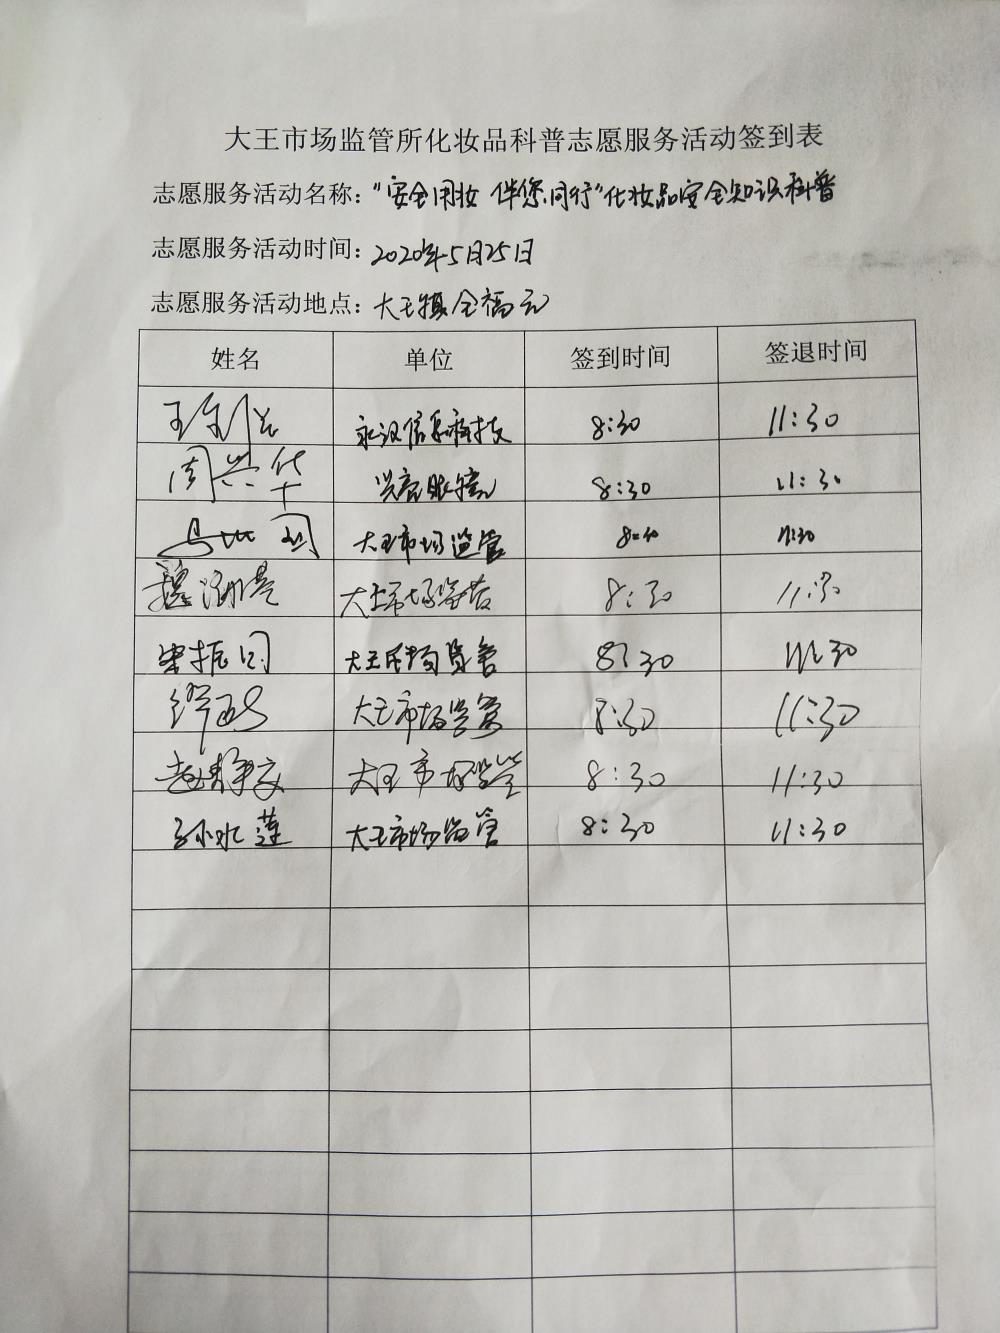 大王市场监管所化妆品科普志愿服务活动签到表
志愿服务活动名称："安全用妆 伴您同行"化妆品安全知识科普
志愿服务活动时间：2020年5月25日
志愿服务活动地点：大王镇全福元
姓名 单位 签到时间 签退时间
信息科技 8:30 11:30
周兴华 眼镜 8:30 11:30
大王市场监管 11:30
魏 大王市场监管 8:30 11:30
大王市场监管 8:30 11:30
大王市场监管 8:30 11:30
赵静文 大王市场监管 8:30 11:30
孙水莲 大王市场监管 8:30 11:30